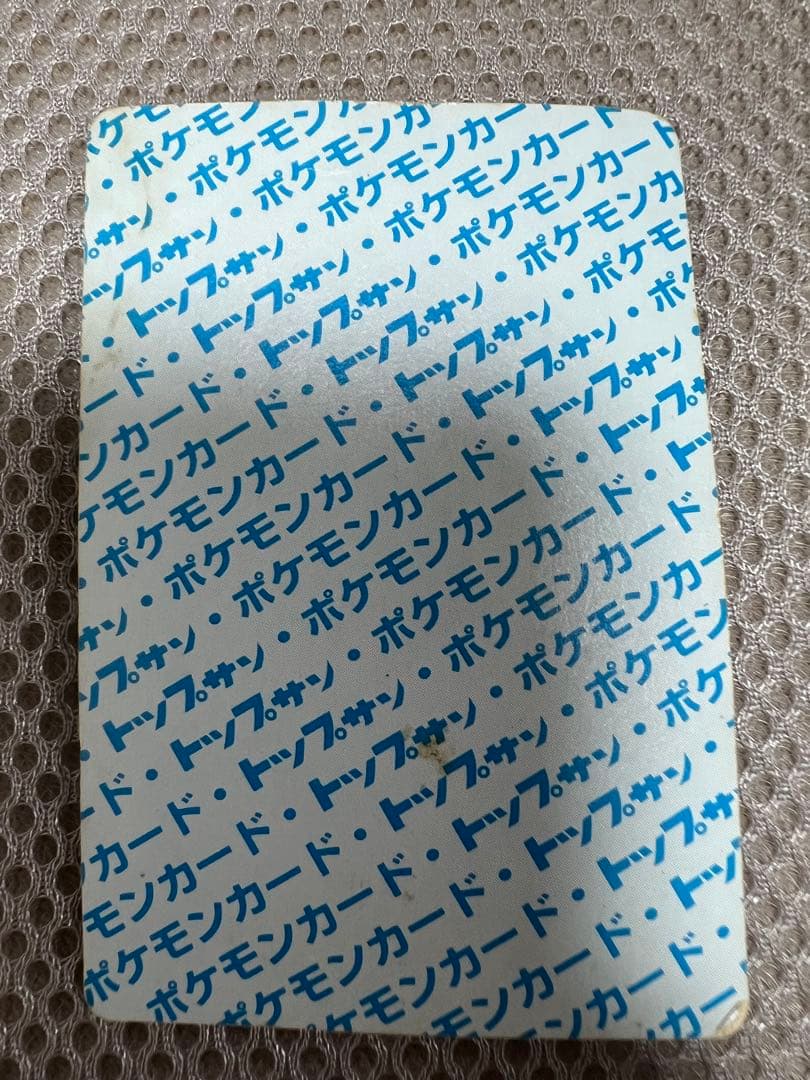 ケモン
・ポケモンカ
サン・ポケモンカ
ップサン・ポケモンカー
・トップサン・ポケモンカード
ード・トップサン・ポケモンカード
ンカード・トップサン・ポケモンカ
ケモンカード・トップサン・ポケモン
・ポケモンカード・トップサン・ポケ
サン・ポケモンカード・トップサン・
ップサン・ポケモンカード・トップサ
・トップサン・ポケモンカード・トッ
ード・トップサン・ポケモンカード・
カード・トップサン・ポケモンカー
モンカード・トップサン・ポケモン
ポケモンカード・トップサン・ポケ
ポケモンカード・トップサン・
ポケモンカード・トップサ
ケモンカード・トッ
ンカード・
カー